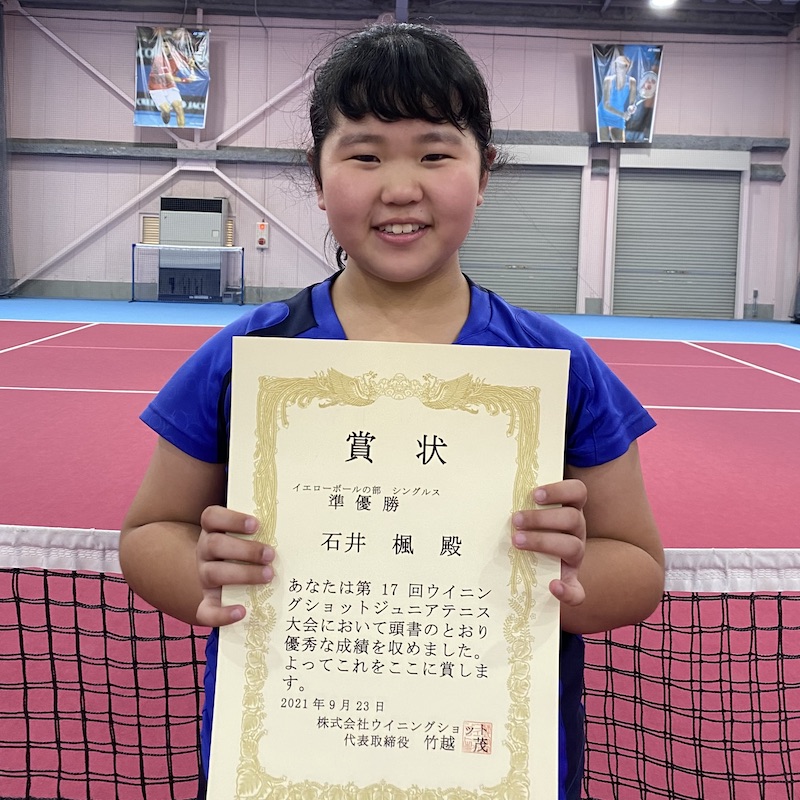 賞 状
イエローボールの部 シングルス
準 優 勝
石井 楓 殿
あなたは第 17 回ウイニン
グショットジュニアテニス
大会において頭書のとおり
優秀な成績を収めました。
よってこれをここに賞しま
す。
2021 年 9 月 23 日
株式会社ウイニングショット
代表取締役 竹越 茂